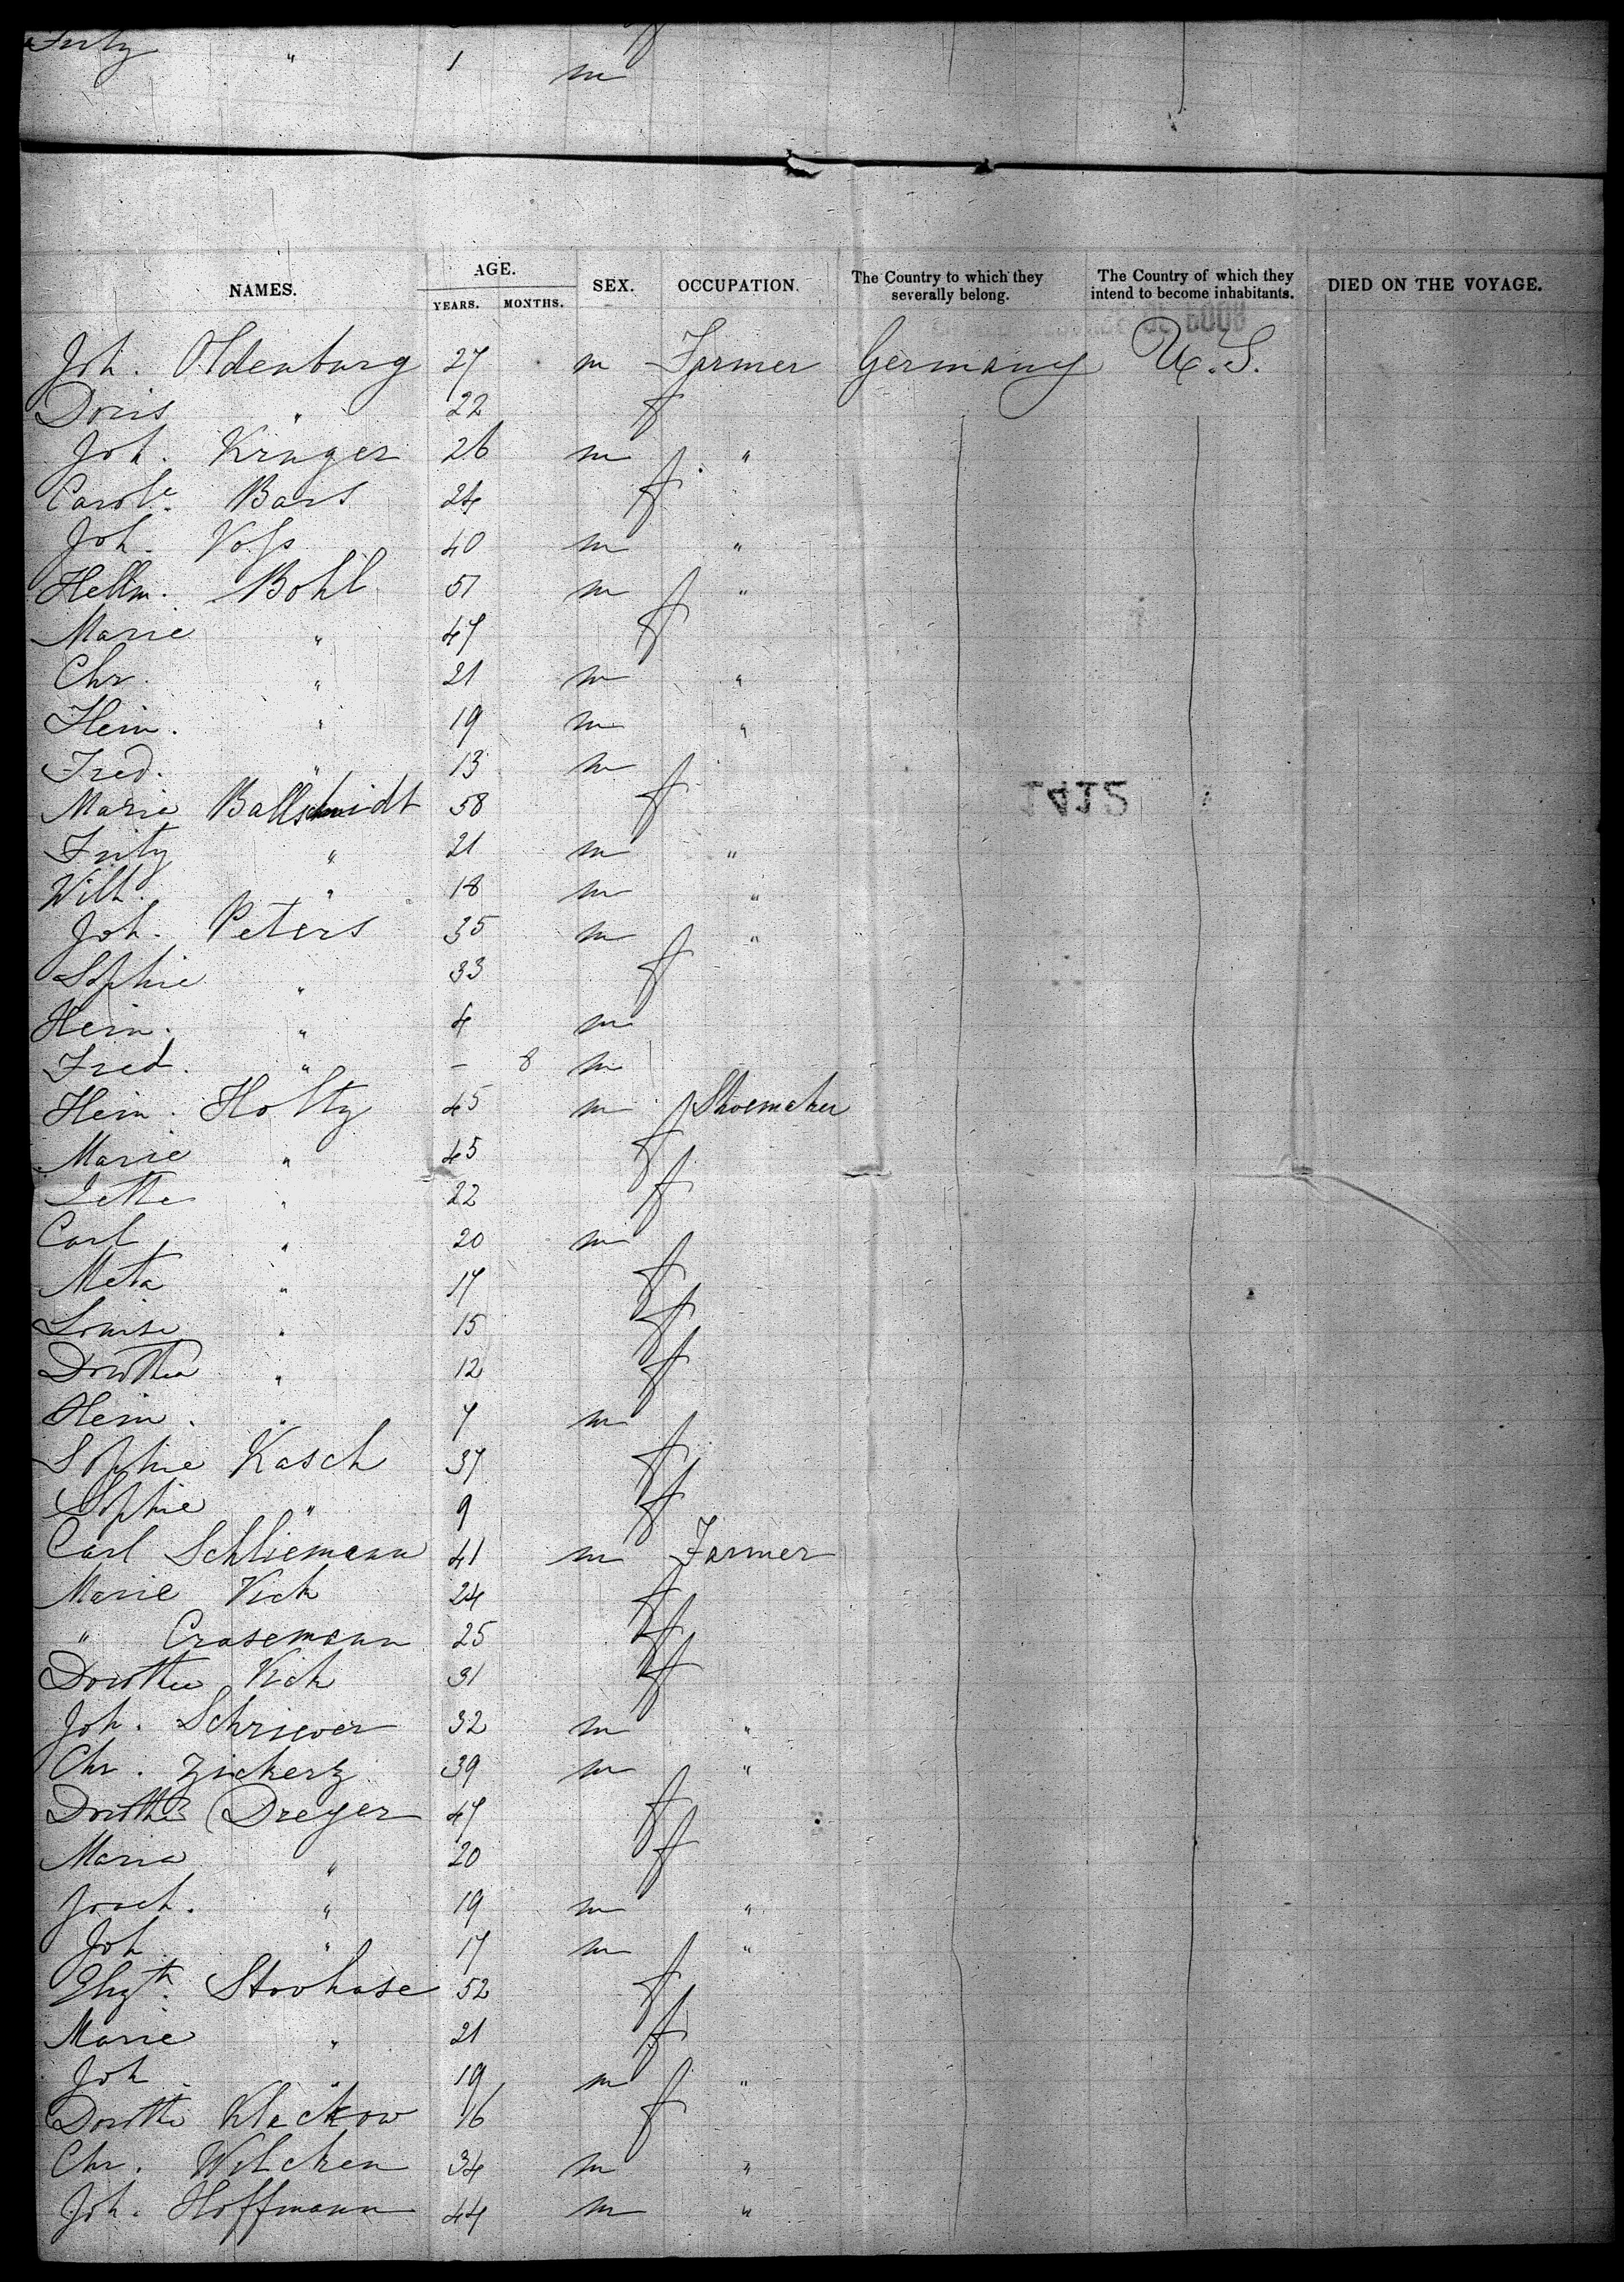 Fritz " 1 m
NAMES. AGE. YEARS. MONTHS. SEX. OCCUPATION. The Country to which they severally belong. The Country of which they intend to become inhabitants. DIED ON THE VOYAGE.
Joh. Oldenburg 27 m Farmer Germany U.S.
Doris " 22 f
Joh. Krüger 26 m "
Carole. Bars 24 f
Joh. Voss 40 m "
Hellm. Bohl 51 m "
Marie " 47 f
Chr. " 21 m "
Hein. " 19 m "
Fred. " 13 m
Maria Ballschmidt 58 f
1412
Fritz " 21 m "
Wilh. " 18 m "
Joh. Peters 35 m "
Sophie " 33 f
Hein. " 4 m
Fred. " – 8 m
Hein. Holtz 45 m Shoemaker
Marie " 45 f
Jette " 22 f
Carl " 20 m
Meta " 17 f
Louise " 15 f
Dorothea " 12 f
Hein. " 7 m
Sophie Kasch 37 f
Sophie " 9 f
Carl Schliemann 41 m Farmer
Marie Vick 24 f
" Crasemann 25 f
Dorothea Vick 31 f
Joh. Schriever 32 m "
Chr. Zickerz 39 m "
Dorothea Dreyer 47 f
Maria " 20 f
Joach. " 19 m "
Joh. " 17 m "
Elizth. Stovhase 52 f
Marie " 21 f
Joh. " 19 m "
Dorothe Klackow 16 f
Chr. Wilcken 34 m "
Joh. Hoffmann 44 m "